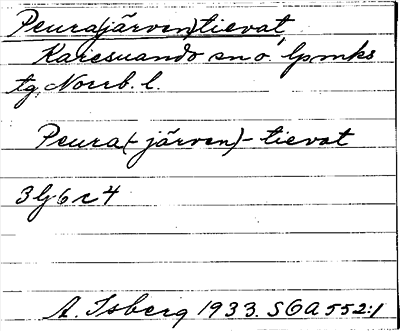 Peura(järven)tievat,
Karesuando sn o. lpmks
tg, Norrb. l.
Peura(-järven)-tievat
3lj6c4
A. Isberg 1933. SOA 552:1